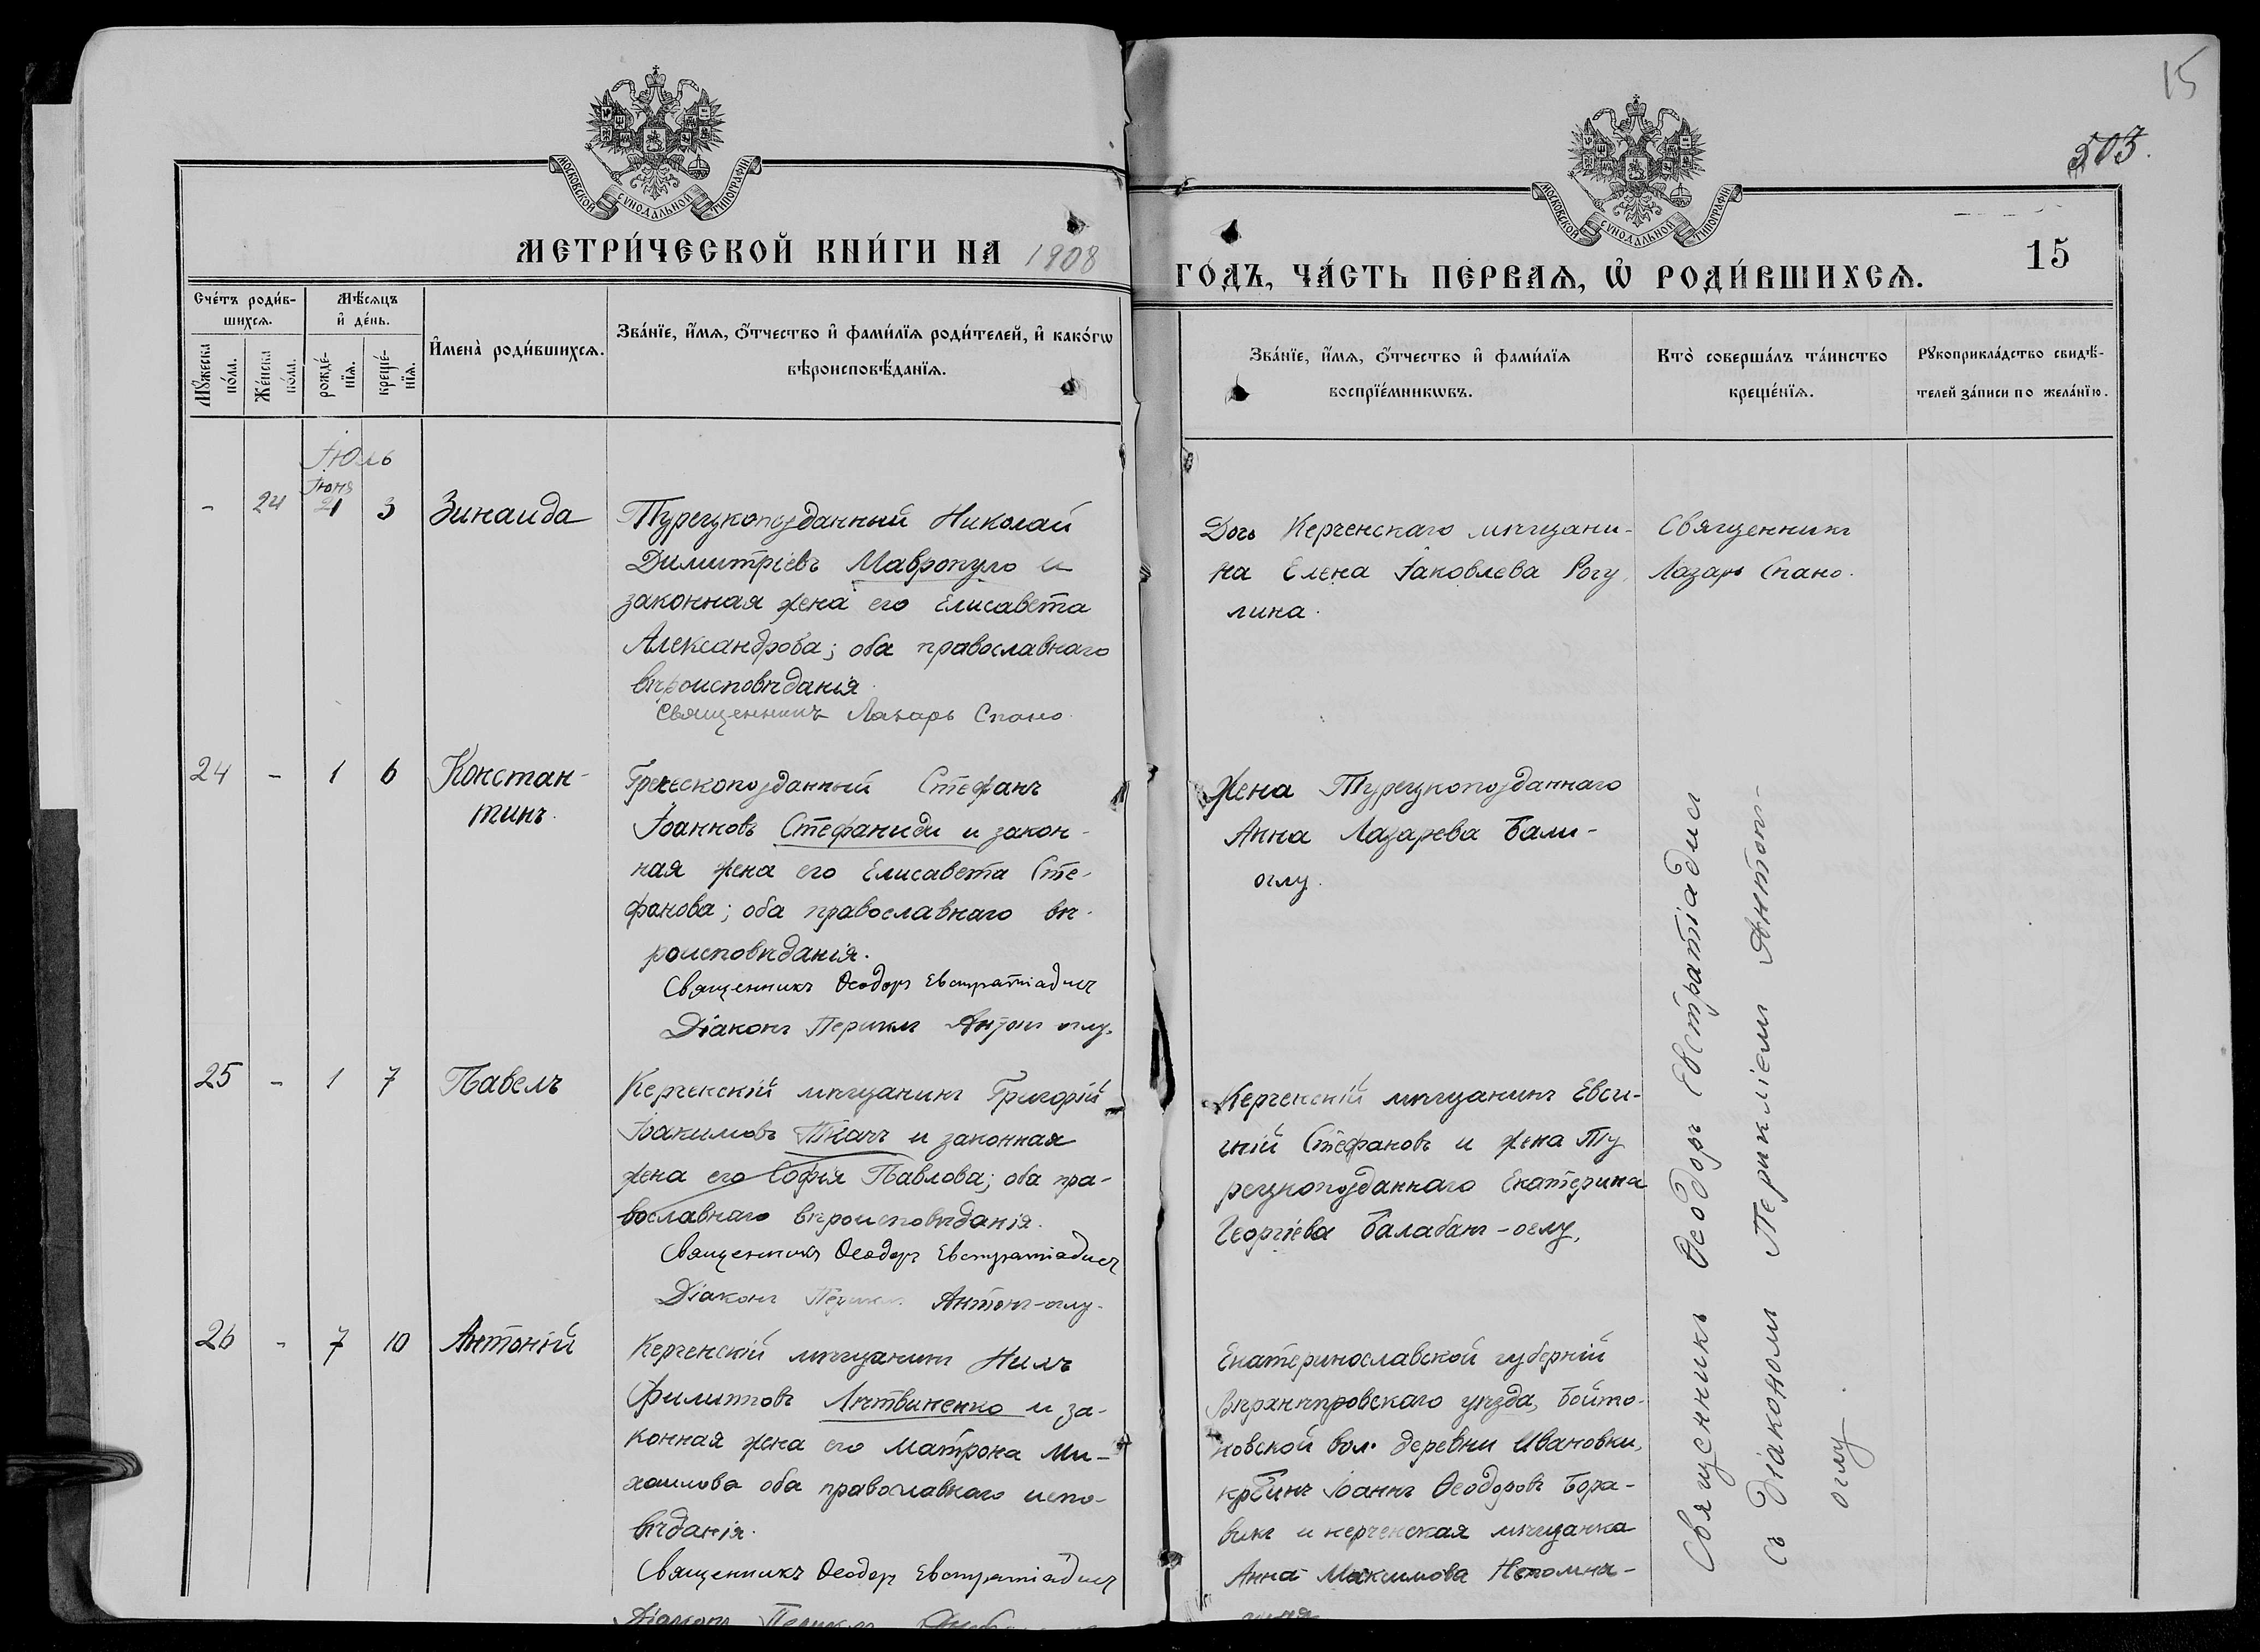 15
503.
МОСКОВСКОЙ СѴНОДАЛЬНОЙ ТИПОГРАФІИ
МОСКОВСКОЙ СѴНОДАЛЬНОЙ ТИПОГРАФІИ
МЕТРИ́ЧЕСКОЙ КНИ́ГИ НА 1908
ГО́ДЪ, ЧА́СТЬ ПЕ́РВАѦ, Ѡ҆ РОДИ́ВШИХСѦ.
15
Сче́тъ роди́в-
шихсѧ.
Мѣ́сѧцъ
и҆ де́нь.
Мꙋ́жеска
по́ла.
Же́нска
по́ла.
рожде́-
нїѧ.
креще́-
нїѧ.
И҆мена̀ роди́вшихсѧ.
Зва́нїе, и҆́мѧ, ѻ҆́тчество и҆ фами́лїѧ роди́телей, и҆ како́гѡ
вѣроисповѣ́данїѧ.
Зва́нїе, и҆́мѧ, ѻ҆́тчество и҆ фами́лїѧ
воспрїе́мникѡвъ.
Кто̀ соверша́лъ та́инство
креще́нїѧ.
Рꙋкоприкла́дство свидѣ́-
телей за́писи по жела́нїю.
Іюль
Іюня
- 24 21 3 Зинаида
Турецкоподданный Николай
Димитріевъ Мавропуло и
законная жена его Елисавета
Александрова; оба православнаго
вѣроисповѣданія.
Священникъ Лазарь Спано.
Дочь Керченскаго мѣщани-
на Елена Іаковлева Рогу
лина.
Священникъ
Лазарь Спано.
24 - 1 6 Констан-
тинъ.
Греческоподданный Стефанъ
Іоанновъ Стефаниди и закон-
ная жена его Елисавета Сте-
фанова; оба православнаго вѣ-
роисповѣданія.
Священникъ Ѳеодоръ Евстратіадисъ
Діаконъ Периклъ Антонъ оглу.
Жена Турецкоподданнаго
Анна Лазарева Бали-
оглу.
25 - 1 7 Павелъ
Керченскій мѣщанинъ Григорій
Іоакимовъ Ткачъ и законная
жена его Софія Павлова; оба пра-
вославнаго вѣроисповѣданія.
Священникъ Ѳеодоръ Евстратіадисъ
Діаконъ Периклъ Антонъ-оглу.
Керченскій мѣщанинъ Евси-
гній Стефановъ и жена Ту
рецкоподданнаго Екатерина
Георгіева Балабанъ-оглу.
26 - 7 10 Антоній
Керченскій мѣщанинъ Нилъ
Филипповъ Литвиненко и за-
конная жена его Матрона Ми-
хаилова оба православнаго испо-
вѣданія.
Священникъ Ѳеодоръ Евстратіадисъ
Діаконъ Периклъ
Екатеринославской губерніи
Верхнѣпровскаго уѣзда, Войто-
новской вол. деревни Ивановки,
кр̅інъ Іоаннъ Ѳеодоровъ Бора-
викъ и керченская мѣщанка
Анна Максимова Непомня-
щая
Священникъ Ѳеодоръ Евстратіадисъ
съ діакономъ Перикліемъ Антонъ-
оглу.